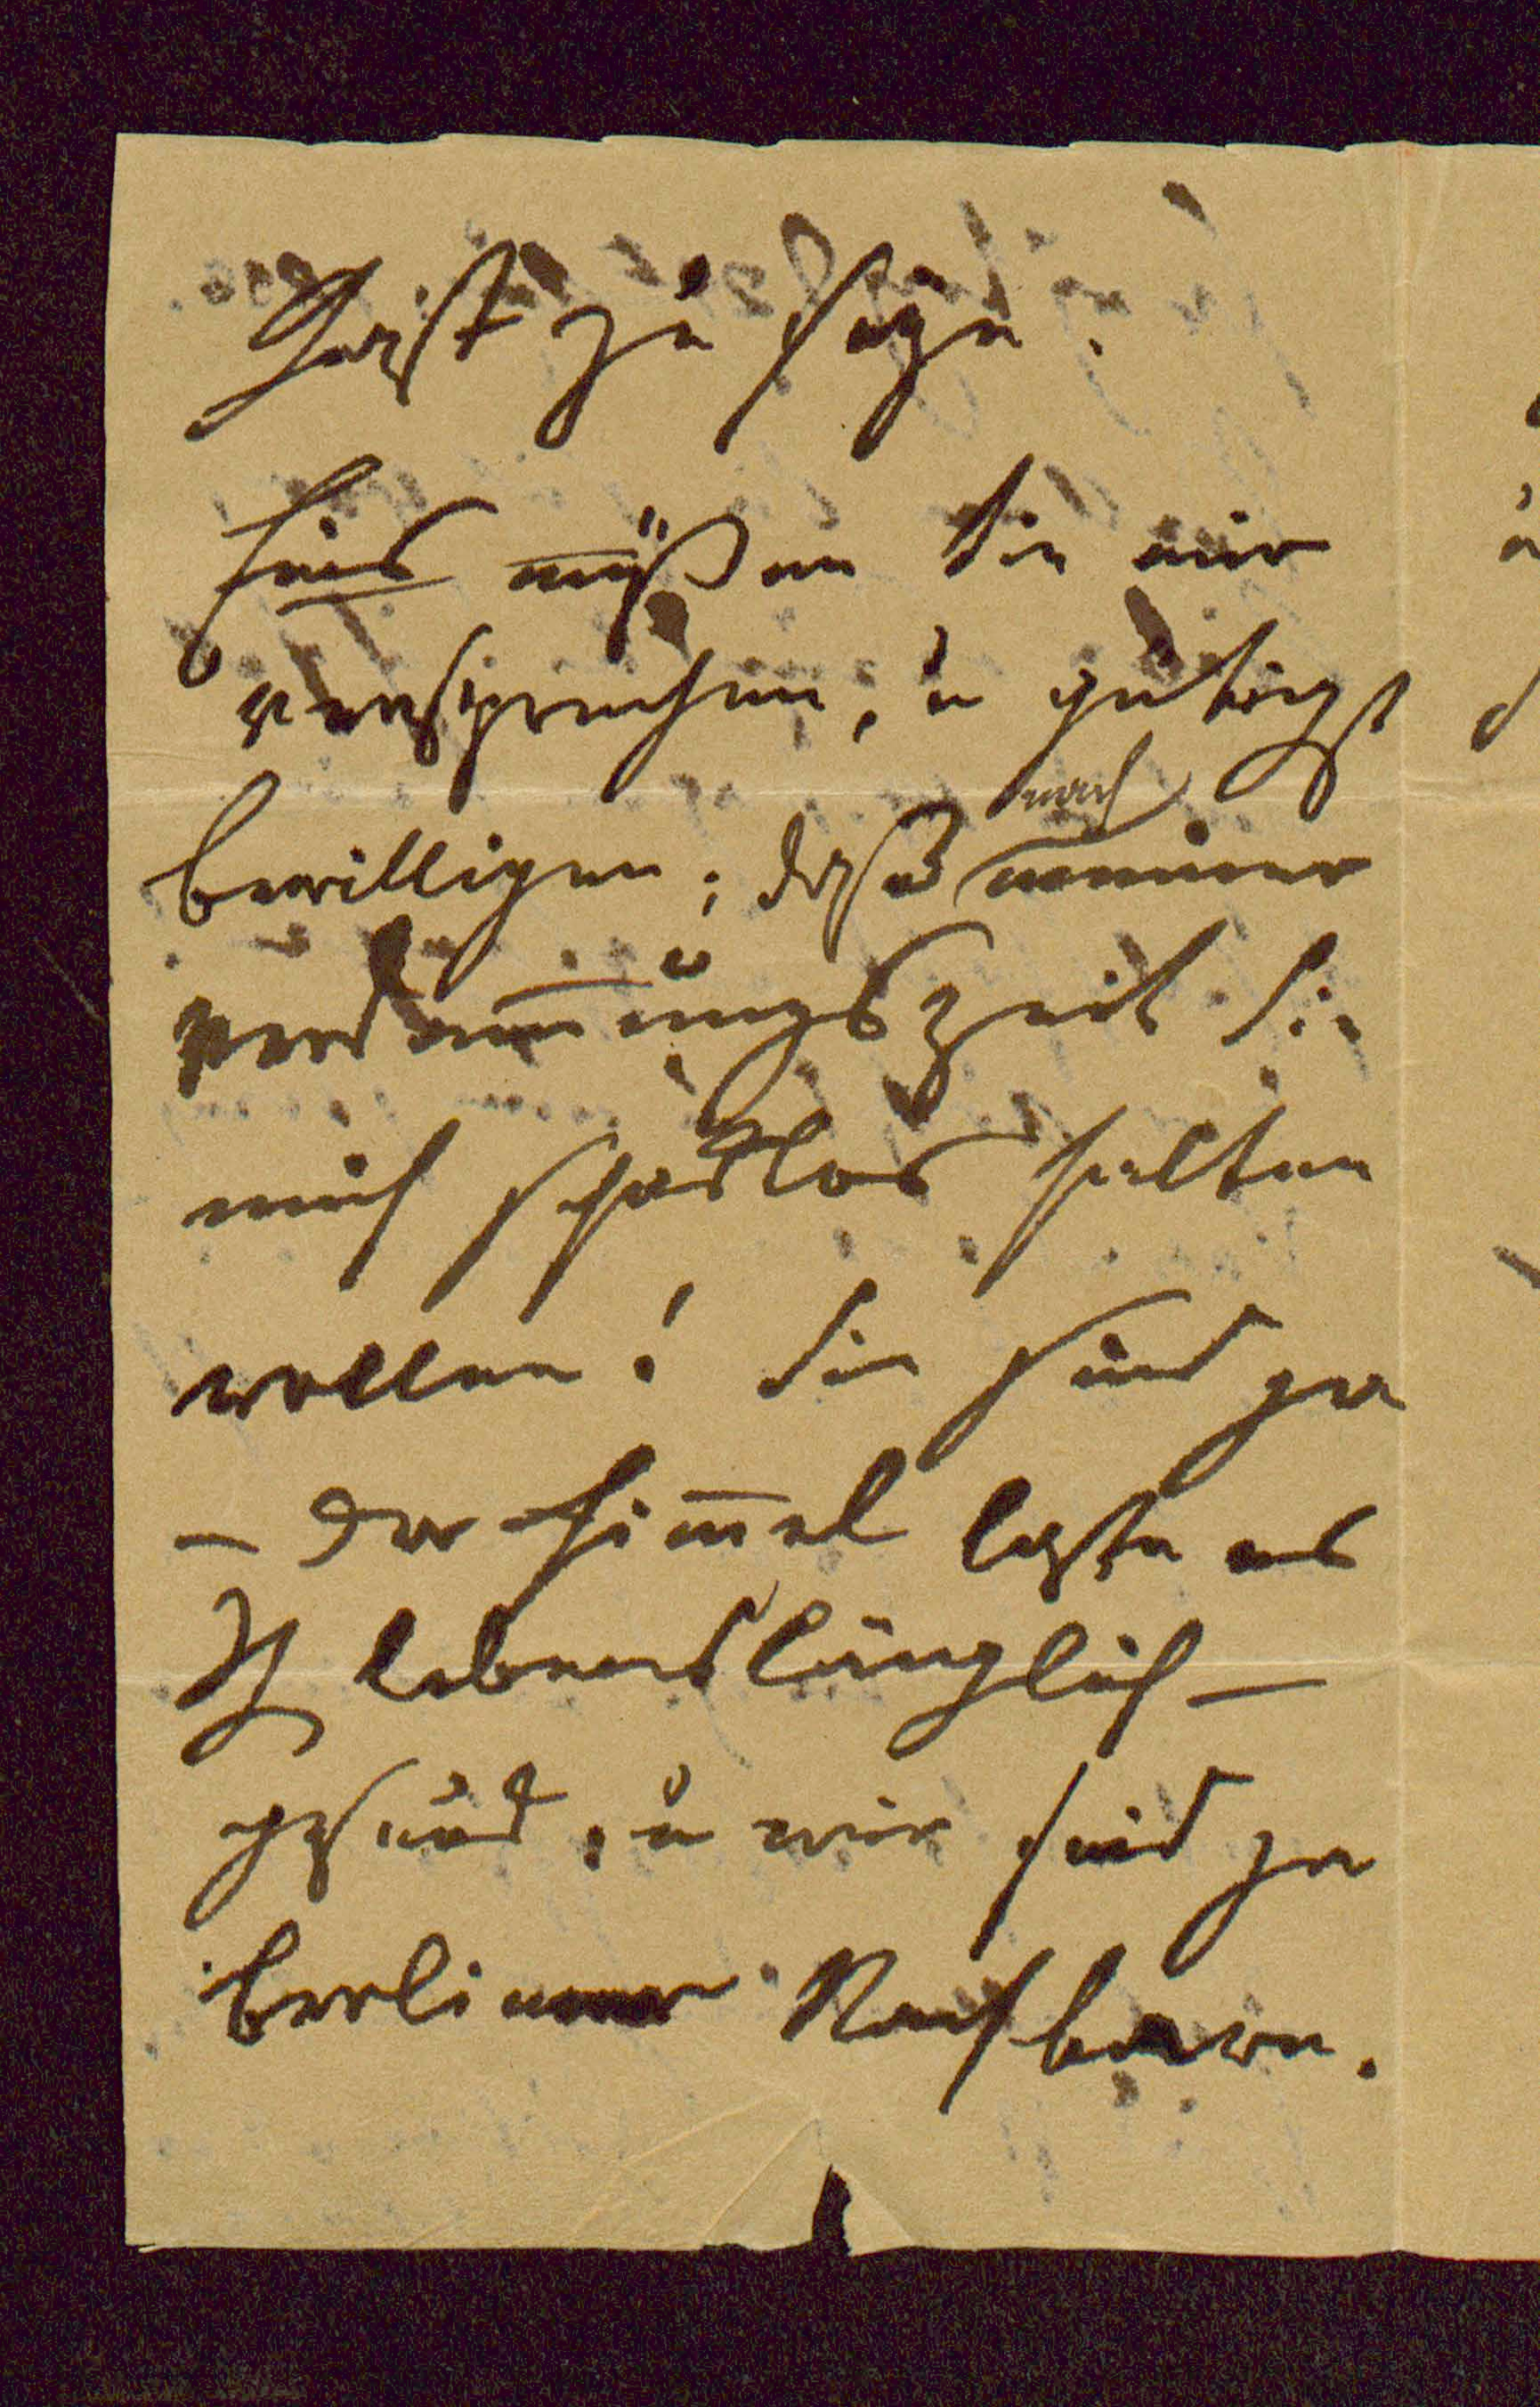 Gast zu sage.
Eins müßen Sie mir
versprechen, u gütigst
bewilligen; daß nach meiner
verdam̅ungszeit Sie
mich schadlos halten
wollen! Sie sind ja
— der Him̅el laße es
Ih lebenslänglich —
gesund, u wir sind ja
berliner Nachbaren.